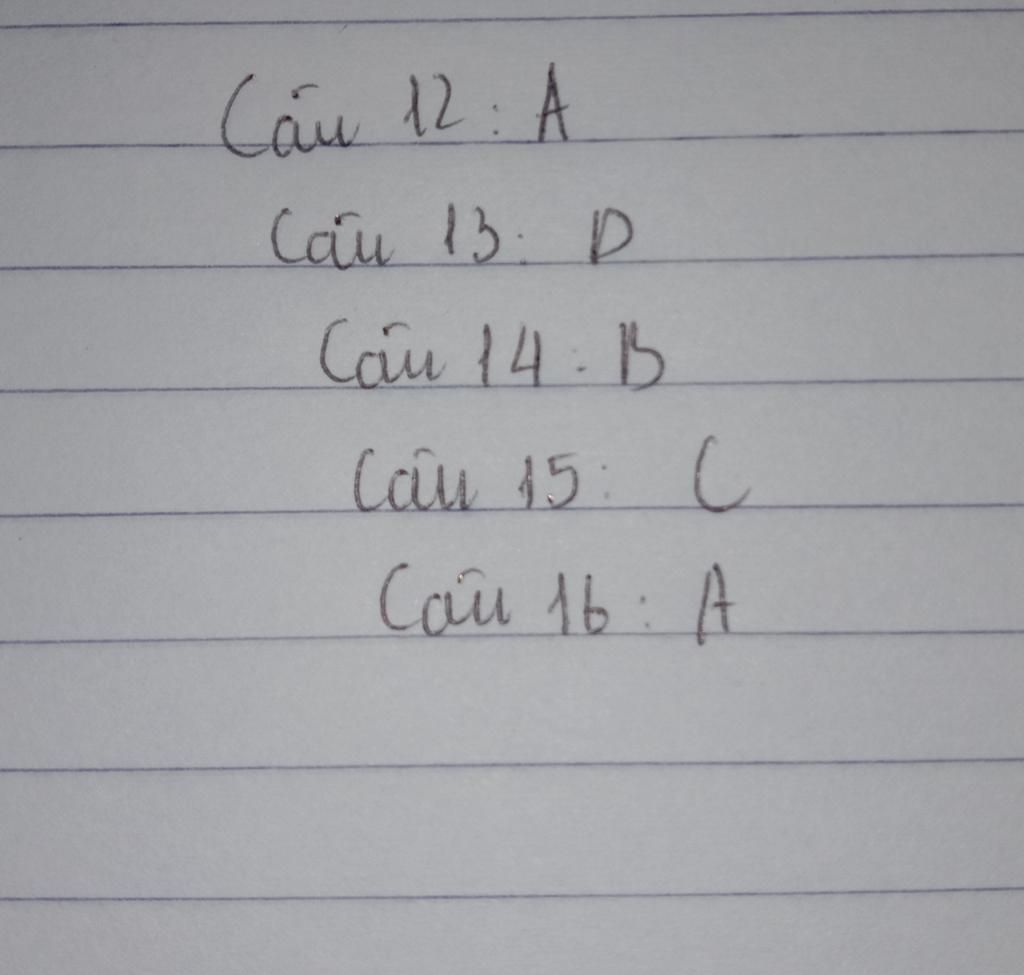 Câu 12: A
Câu 13: D
Câu 14: B
Câu 15: C
Câu 16: A